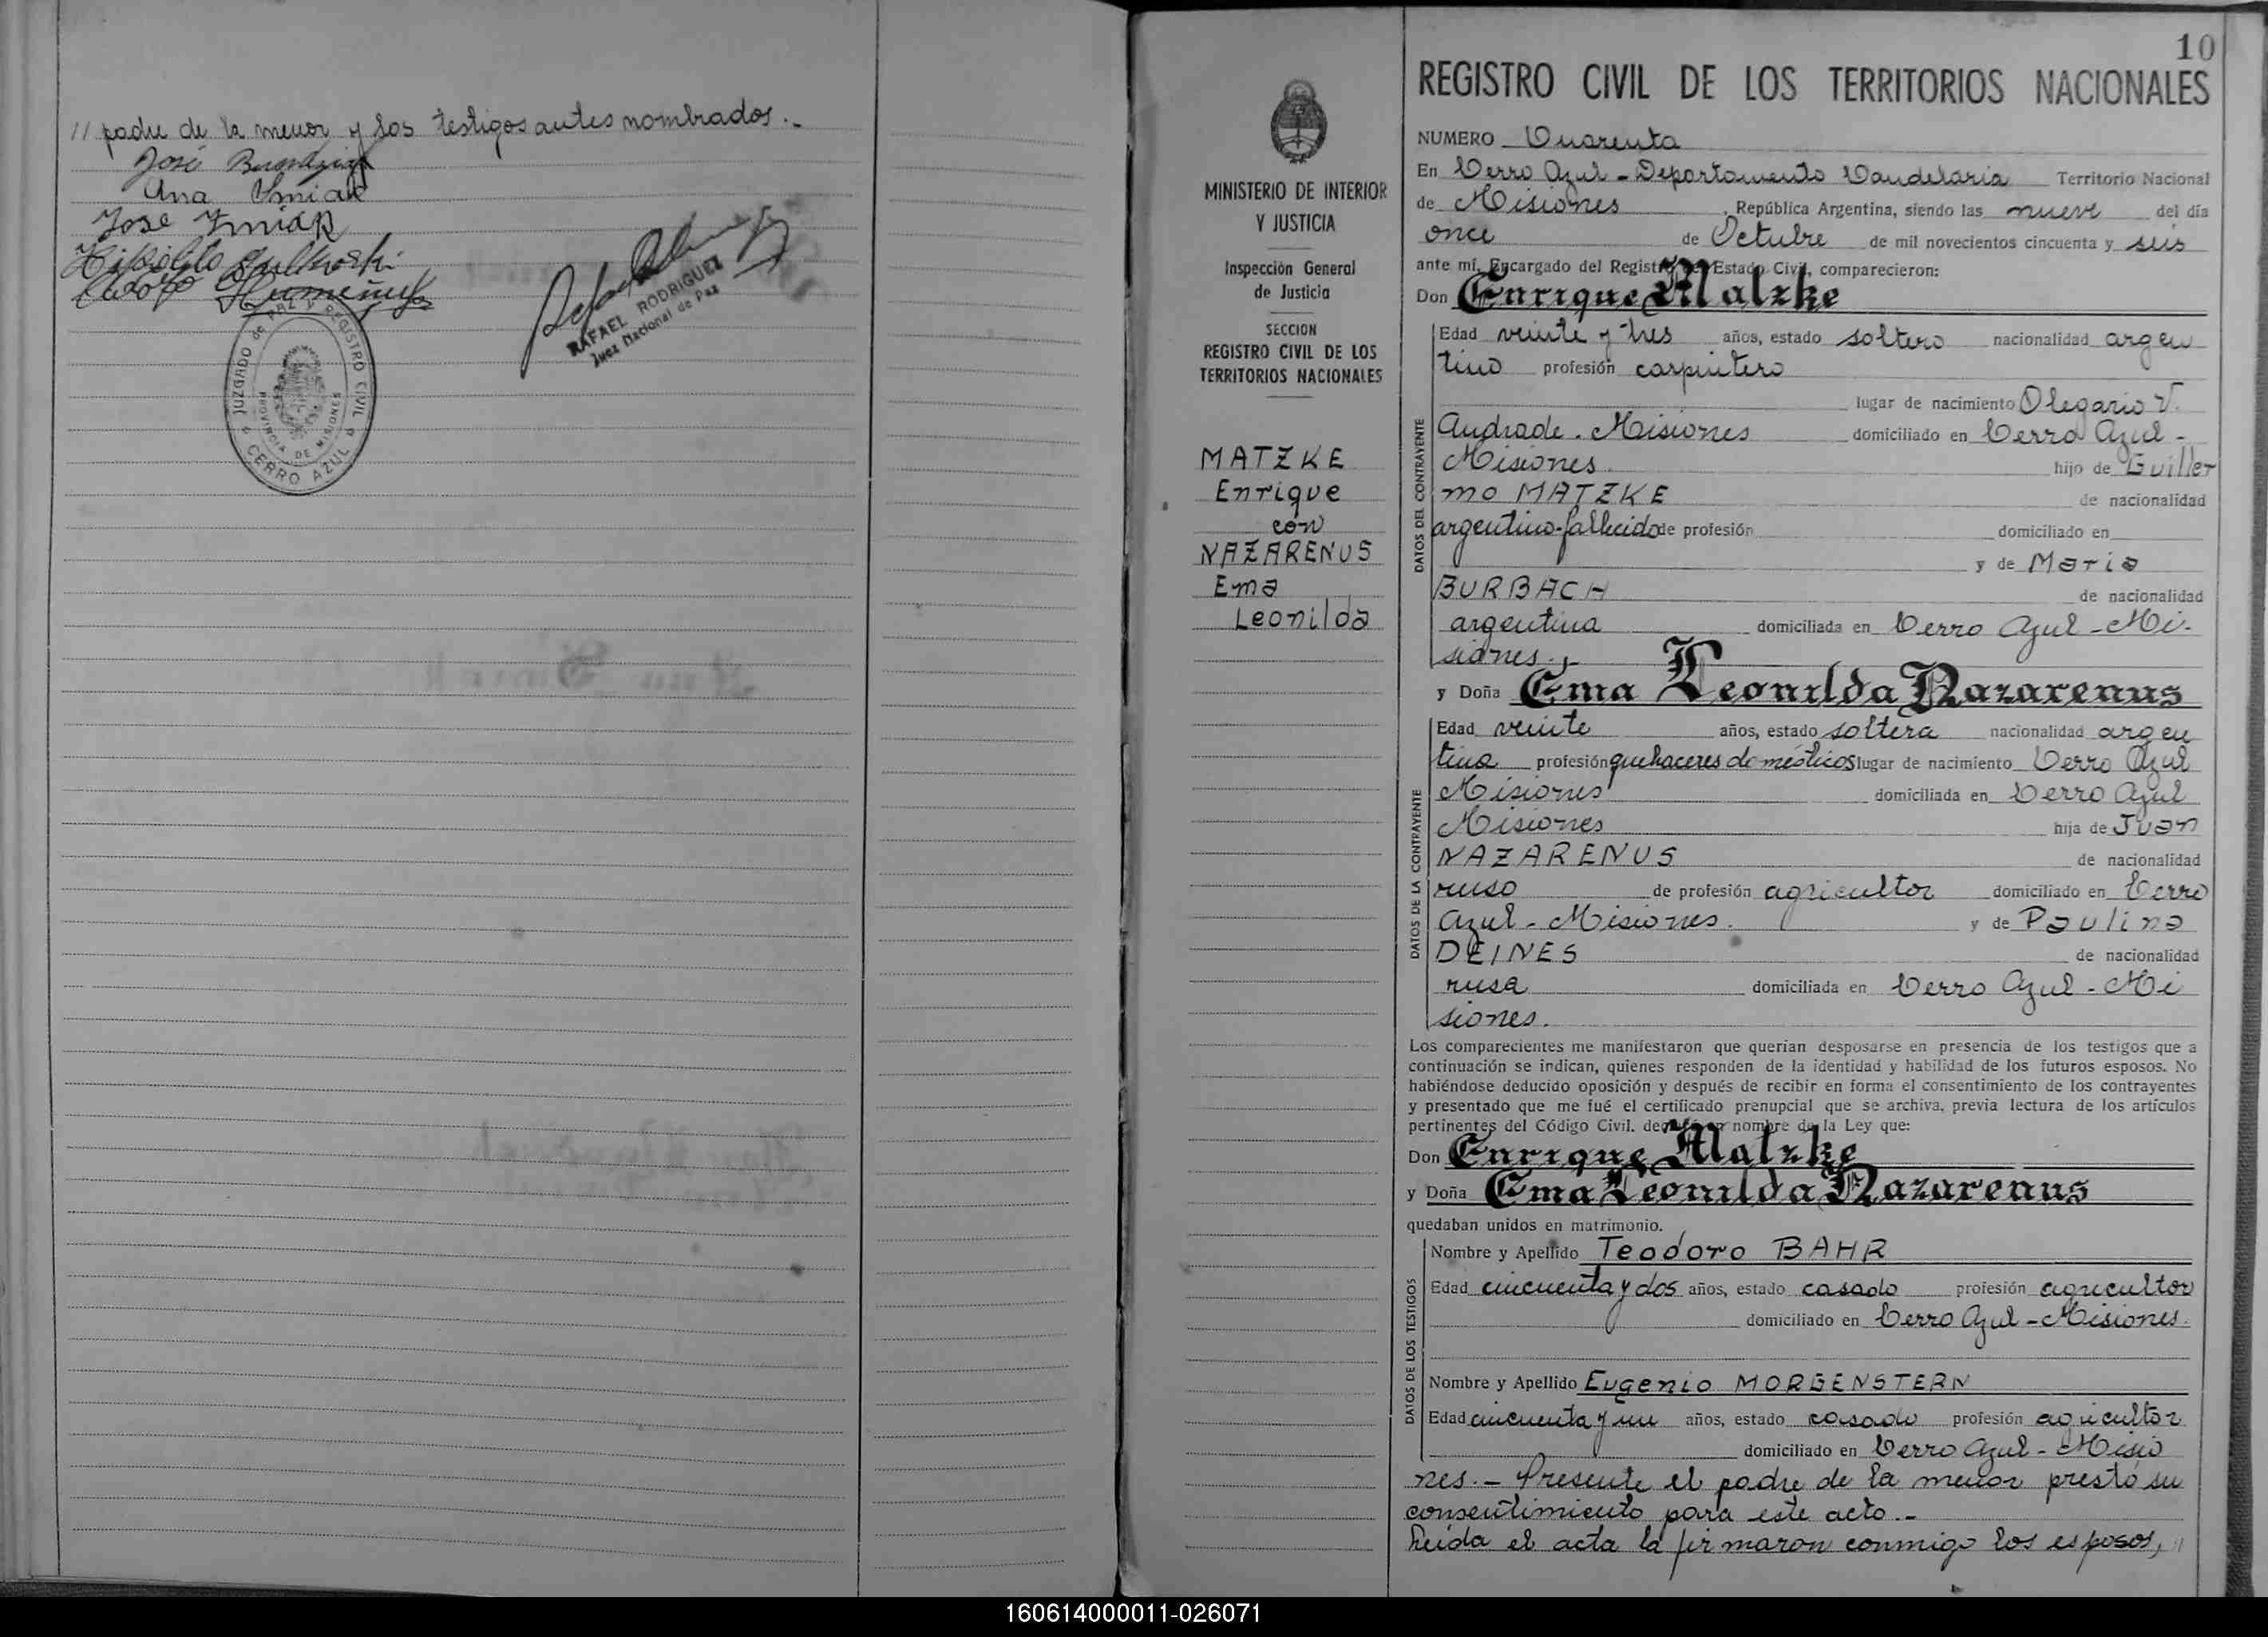 // padre de la menor y los testigos antes nombrados.-
José
Ana Smiak
Jose Smiak
Hipolito
RAFAEL RODRIGUEZ
Juez Nacional de Paz
JUZGADO de PAZ y REGISTRO CIVIL
PROVINCIA DE MISIONES
CERRO AZUL
10
MINISTERIO DE INTERIOR
Y JUSTICIA
Inspección General
de Justicia
SECCION
REGISTRO CIVIL DE LOS
TERRITORIOS NACIONALES
MATZKE
Enrique
con
NAZARENUS
Ema
Leonilda
REGISTRO CIVIL DE LOS TERRITORIOS NACIONALES
NUMERO Cuarenta
En Cerro Azul - Departamento Candelaria Territorio Nacional
de Misiones, República Argentina, siendo las nueve del día
once de Octubre de mil novecientos cincuenta y seis
ante mí, Encargado del Registro del Estado Civil, comparecieron:
Don Enrique Matzke
DATOS DEL CONTRAYENTE
Edad veinte y tres años, estado soltero nacionalidad argen
tino profesión carpintero
lugar de nacimiento Olegario V.
Andrade. Misiones domiciliado en Cerro Azul -
Misiones. hijo de Guiller
mo MATZKE de nacionalidad
argentino-fallecido de profesión domiciliado en
y de Maria
BURBACH de nacionalidad
argentina domiciliada en Cerro Azul - Mi-
siones.,
y Doña Ema Leonilda Nazarenus
DATOS DE LA CONTRAYENTE
Edad veinte años, estado soltera nacionalidad argen
tina profesión quehaceres domésticos lugar de nacimiento Cerro Azul
Misiones domiciliada en Cerro Azul
Misiones hija de Juan
NAZARENUS de nacionalidad
ruso de profesión agricultor domiciliado en Cerro
Azul - Misiones. y de Paulina
DEINES de nacionalidad
rusa domiciliada en Cerro Azul - Mi
siones.
Los comparecientes me manifestaron que querían desposarse en presencia de los testigos que a
continuación se indican, quienes responden de la identidad y habilidad de los futuros esposos. No
habiéndose deducido oposición y después de recibir en forma el consentimiento de los contrayentes
y presentado que me fué el certificado prenupcial que se archiva, previa lectura de los artículos
pertinentes del Código Civil. declaré en nombre de la Ley que:
Don Enrique Matzke
y Doña Ema Leonilda Nazarenus
quedaban unidos en matrimonio.
DATOS DE LOS TESTIGOS
Nombre y Apellido Teodoro BAHR
Edad cincuenta y dos años, estado casado profesión agricultor
domiciliado en Cerro Azul - Misiones.
Nombre y Apellido Eugenio MORGENSTERN
Edad cincuenta y un años, estado casado profesión agricultor
domiciliado en Cerro Azul - Misio
nes.- Presente el padre de la menor prestó su
consentimiento para este acto.-
Leida el acta la firmaron conmigo los esposos, //
160614000011-026071